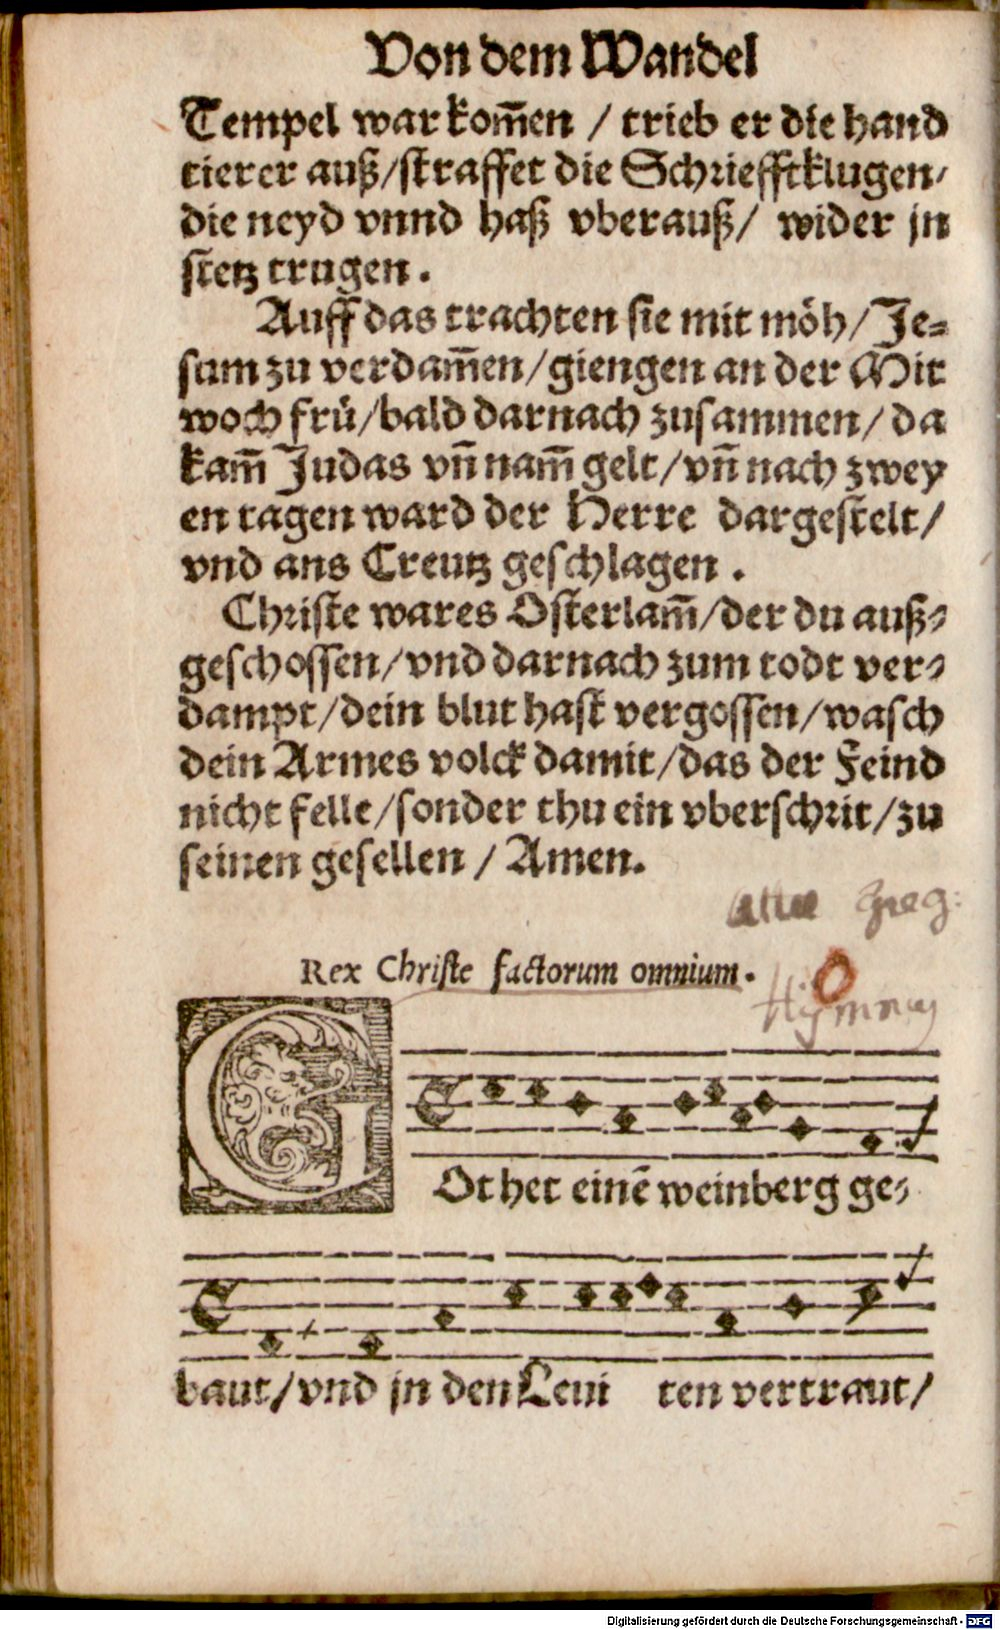 Von dem Wandel
Tempel war kom̄en / trieb er die hand
tierer auß/straffet die Schriefftklugen/
die neyd vnnd haß vberauß/ wider jn
stetz trugen.
Auff das trachten sie mit möh/Je⸗
sum zu verdam̄en/giengen an der Mit
woch frü/bald darnach zusammen/da
kam̄ Judas vn̄ nam̄ gelt/vn̄ nach zwey
en tagen ward der Herre dargestelt/
vnd ans Creutz geschlagen.
Christe wares Osterlam̄/der du auß⸗
geschossen/vnd darnach zum todt ver⸗
dampt/dein blut hast vergossen/wasch
dein Armes volck damit/das der Feind
nicht felle/sonder thu ein vberschrit/zu
seinen gesellen / Amen.
Greg:
Rex Christe factorum omnium.
Hymnus
GOt het einē weinberg ge⸗
baut/vnd jn den Leui ten vertraut/
Digitalisierung gefördert durch die Deutsche Forschungsgemeinschaft - DFG